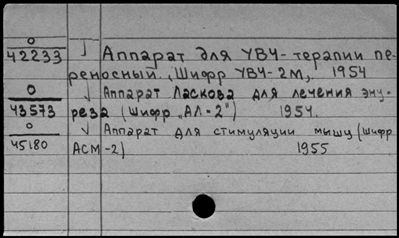 0
42233 Аппарат для УВЧ-терапии пе-
реносный. (Шифр УВЧ-2М), 1954
0 Аппарат Ласкова для лечения эну-
43573 реза (Шифр „АЛ-2") 1954.
0 Аппарат для стимуляции мышц (шифр
45180 АСМ-2) 1955